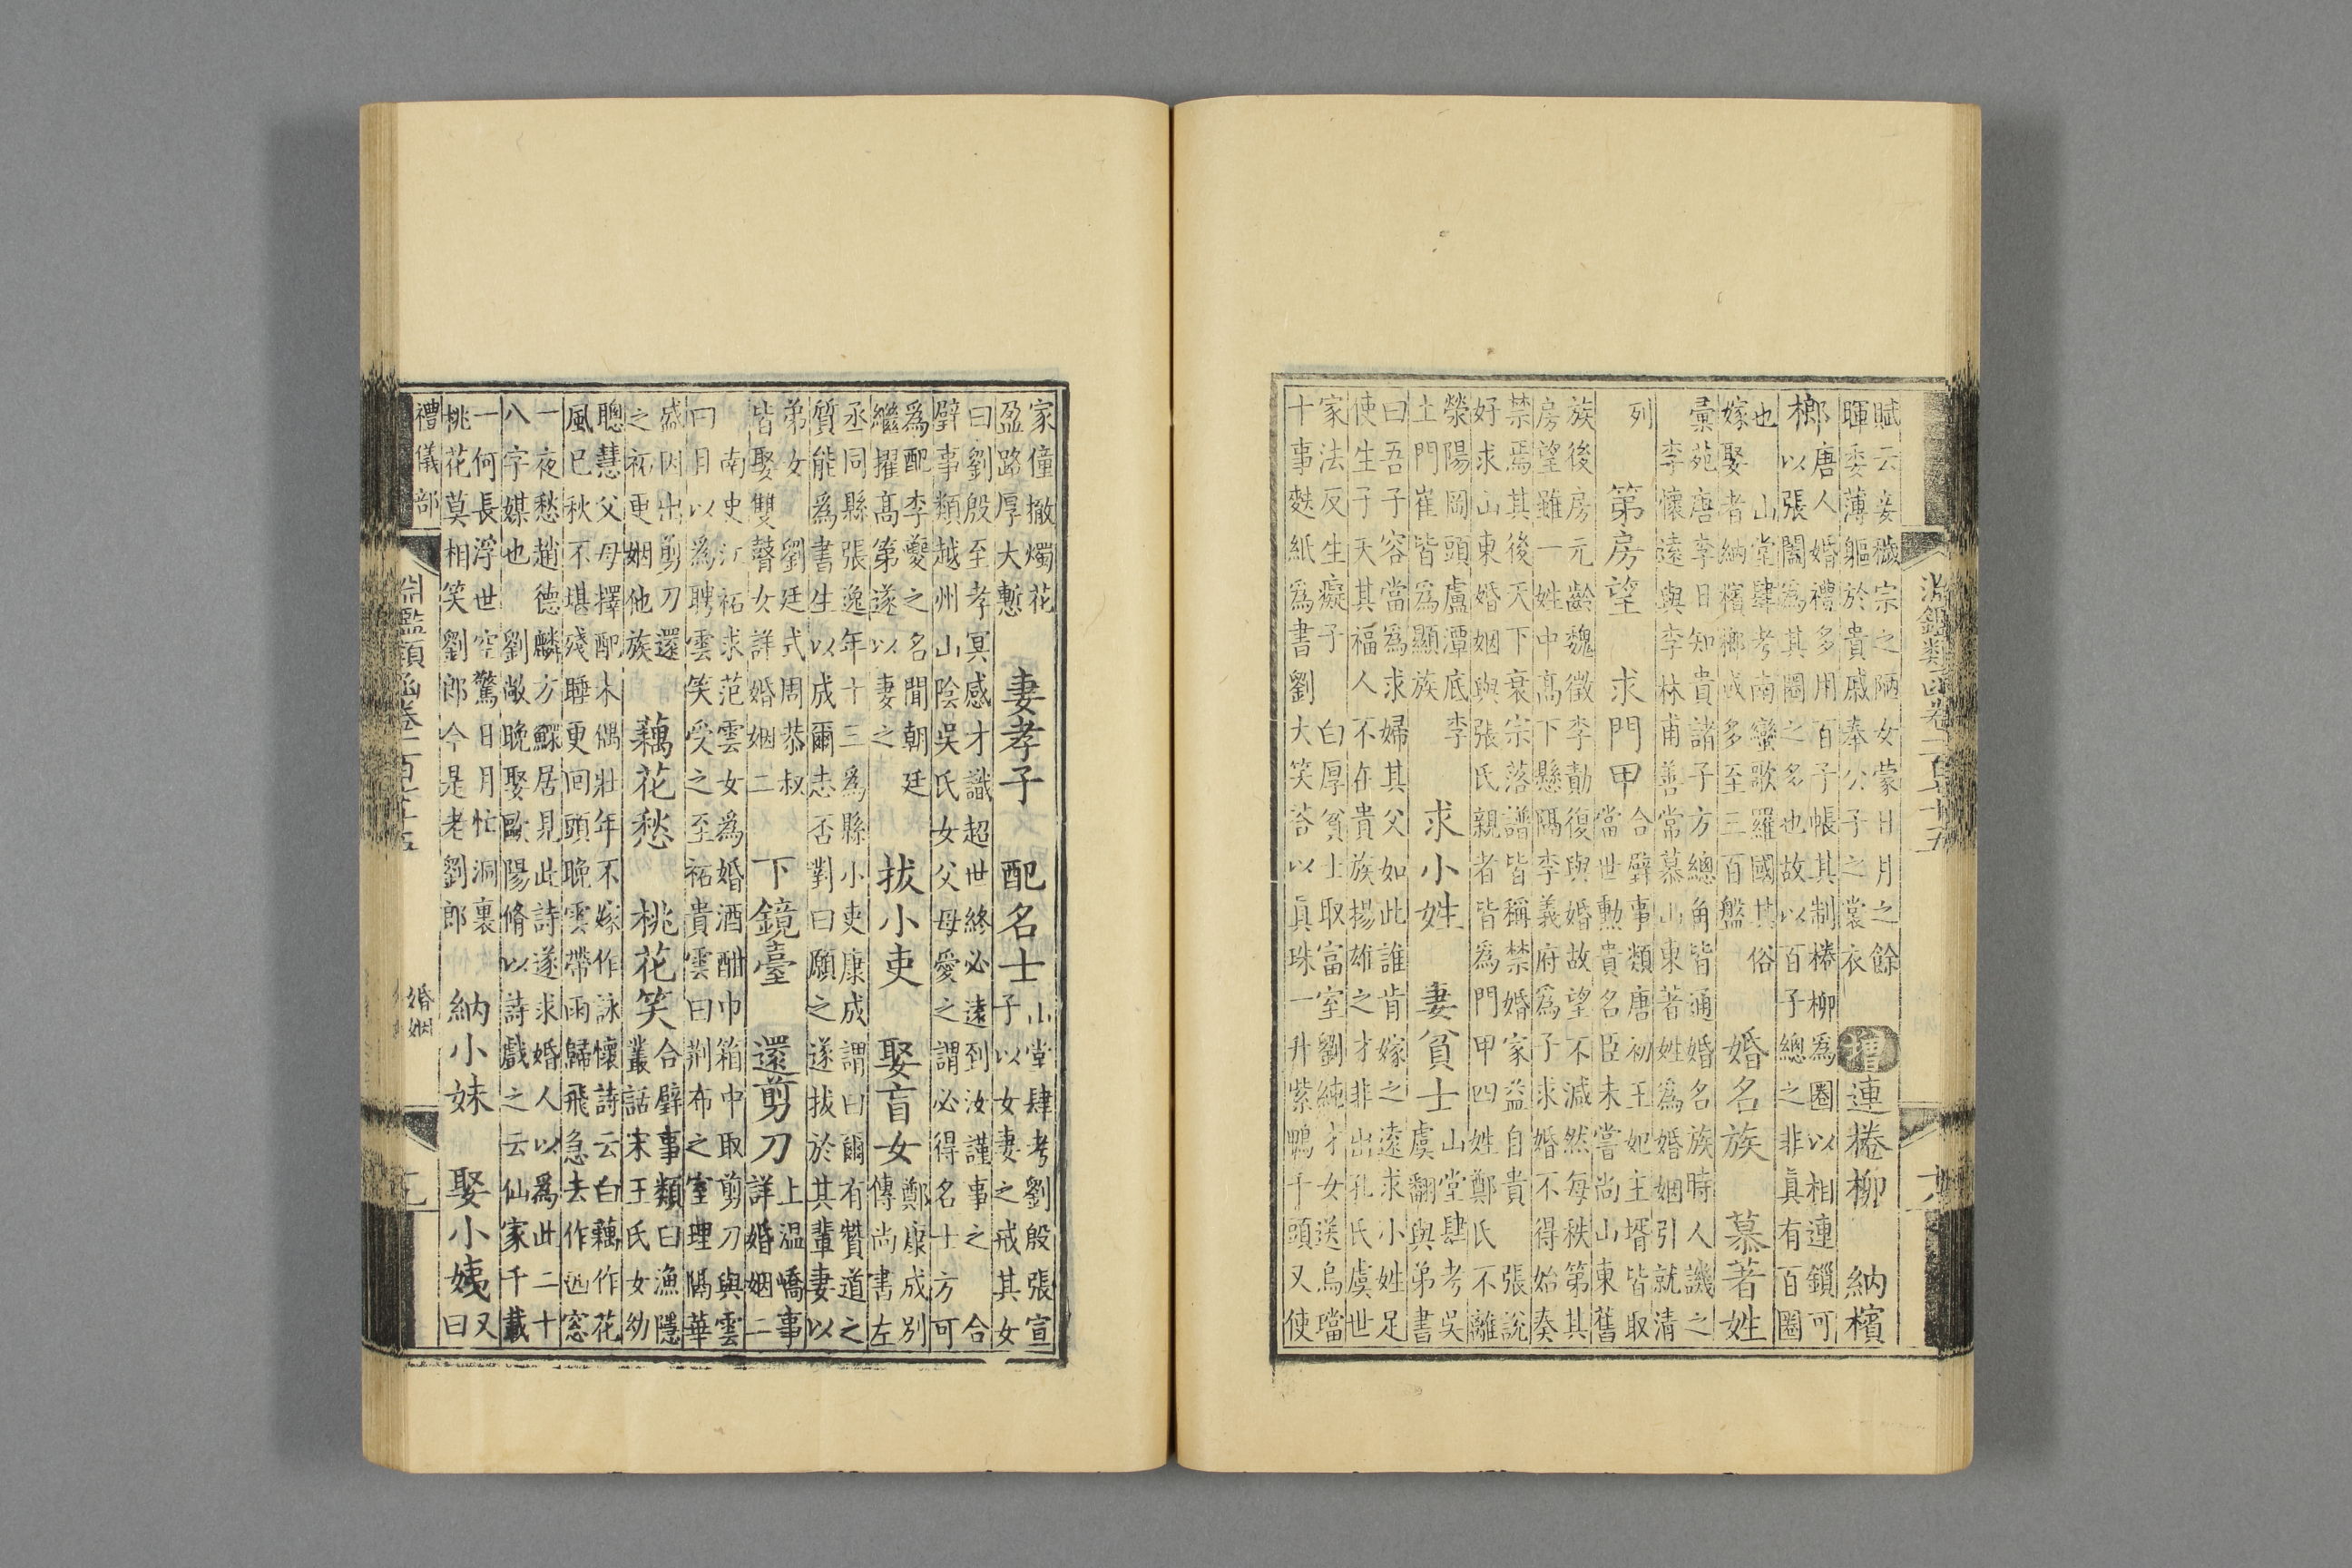 淵鑑類函卷一百七十五
賦云妾穢宗之陋女蒙日月之餘
暉委薄軀於貴戚奉公子之裳衣
增 連棬柳 納檳
榔
唐人婚禮多用百子帳其制棬柳為圈以相連鎖可
以張闔為其圈之多也故以百子總之非真有百圈
也 山堂肆考南蠻歌羅國其俗
嫁娶者納檳榔或多至三百盤
婚名族 慕著姓
彙苑唐李日知貴諸子方總角皆通婚名族時人譏之
李懷遠與李林甫善常慕山東著姓為婚姻引就清
列
第房望 求門甲
合璧事類唐初王妃主壻皆取
當世勲貴名臣未嘗尚山東舊
族後房元齡魏徵李勣復與婚故望不減然每秩第其
房望雖一姓中髙下懸隔李義府為子求婚不得始奏
禁焉其後天下衰宗落譜皆稱禁婚家益自貴 張説
好求山東婚姻與張氏親者皆為門甲四姓鄭氏不離
滎陽岡頭盧潭底李
土門崔皆為顯族
求小姓 妻貧士
山堂肆考吳
虞翻與弟書
曰吾子容當為求婦其父如此誰肯嫁之逺求小姓足
使生子天其福人不在貴族揚雄之才非出孔氏虞世
家法反生癡子 白厚貧士取富室劉純才女送烏璫
十事麩紙為書劉大笑答以真珠一升紫鴨千頭又使
家僮撤燭花
盈路厚大慙
妻孝子 配名士
山堂肆考劉殷張宣
子以女妻之戒其女
曰劉殷至孝冥感才識超世終必逺到汝謹事之 合
璧事類越州山陰吳氏女父母愛之謂必得名士方可
為配李夔之名聞朝廷
繼擢髙第遂以妻之
拔小吏 娶盲女
鄭康成别
傳尚書左
丞同縣張逸年十三為縣小吏康成謂曰爾有贊道之
質能為書生以成爾志否對曰願之遂拔於其輩妻以
弟女 劉廷式周恭叔
皆娶雙瞽女詳婚姻二
下鏡臺 還剪刀
上溫嶠事
詳婚姻二
南史江祏求范雲女為婚酒酣巾箱中取剪刀與雲
曰且以為聘雲笑受之至祏貴雲曰荆布之室理隔華
盛因出剪刀還
之祏更姻他族
藕花愁 桃花笑
合璧事類曰漁隱
叢話末王氏女幼
聰慧父母擇配未偶壯年不嫁作詠懷詩云白藕作花
風已秋不堪殘睡更回頭晚雲帶雨歸飛急去作西窓
一夜愁趙德麟方鰥居見此詩遂求婚人以為此二十
八字媒也 劉敞晚娶歐陽脩以詩戲之云仙家千載
一何長浮世空驚日月忙洞裏
桃花莫相笑劉郎今是老劉郎
納小妹 娶小姨
又
曰
禮儀部
淵鑑類函卷一百七十五
婚姻